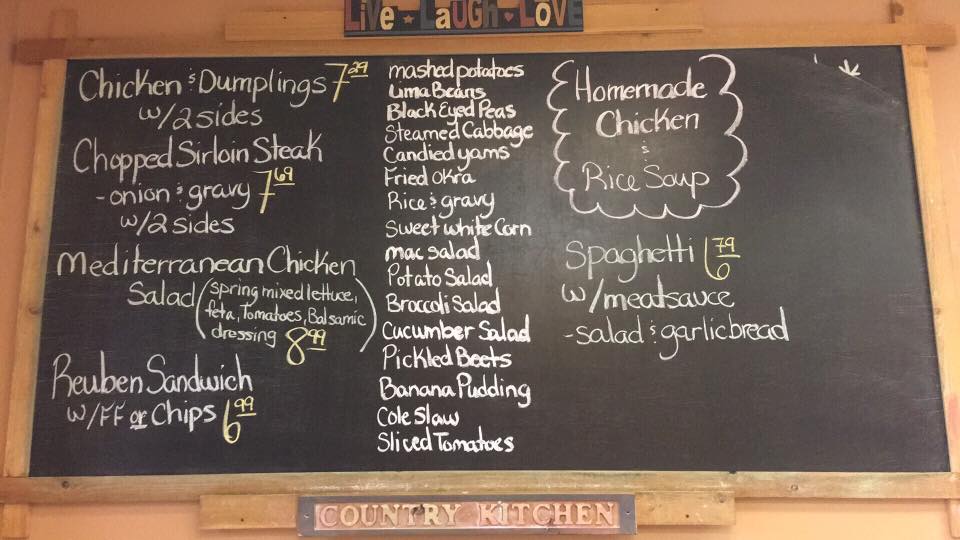 Live Laugh Love
Chicken & Dumplings 7 29
w/2 sides
Chopped Sirloin Steak
- onion & gravy 7 69
w/2 sides
Mediterranean Chicken
Salad (spring mixed lettuce,
feta, Tomatoes, Balsamic
dressing) 8 99
Reuben Sandwich
w/FF or Chips 6 99
mashed potatoes
Lima Beans
Black Eyed Peas
Steamed Cabbage
Candied yams
Fried Okra
Rice & gravy
Sweet white Corn
mac salad
Potato Salad
Broccoli Salad
Cucumber Salad
Pickled Beets
Banana Pudding
Cole Slaw
Sliced Tomatoes
Homemade
Chicken
&
Rice Soup
Spaghetti 6 79
w/meatsauce
- salad & garlic bread
COUNTRY KITCHEN